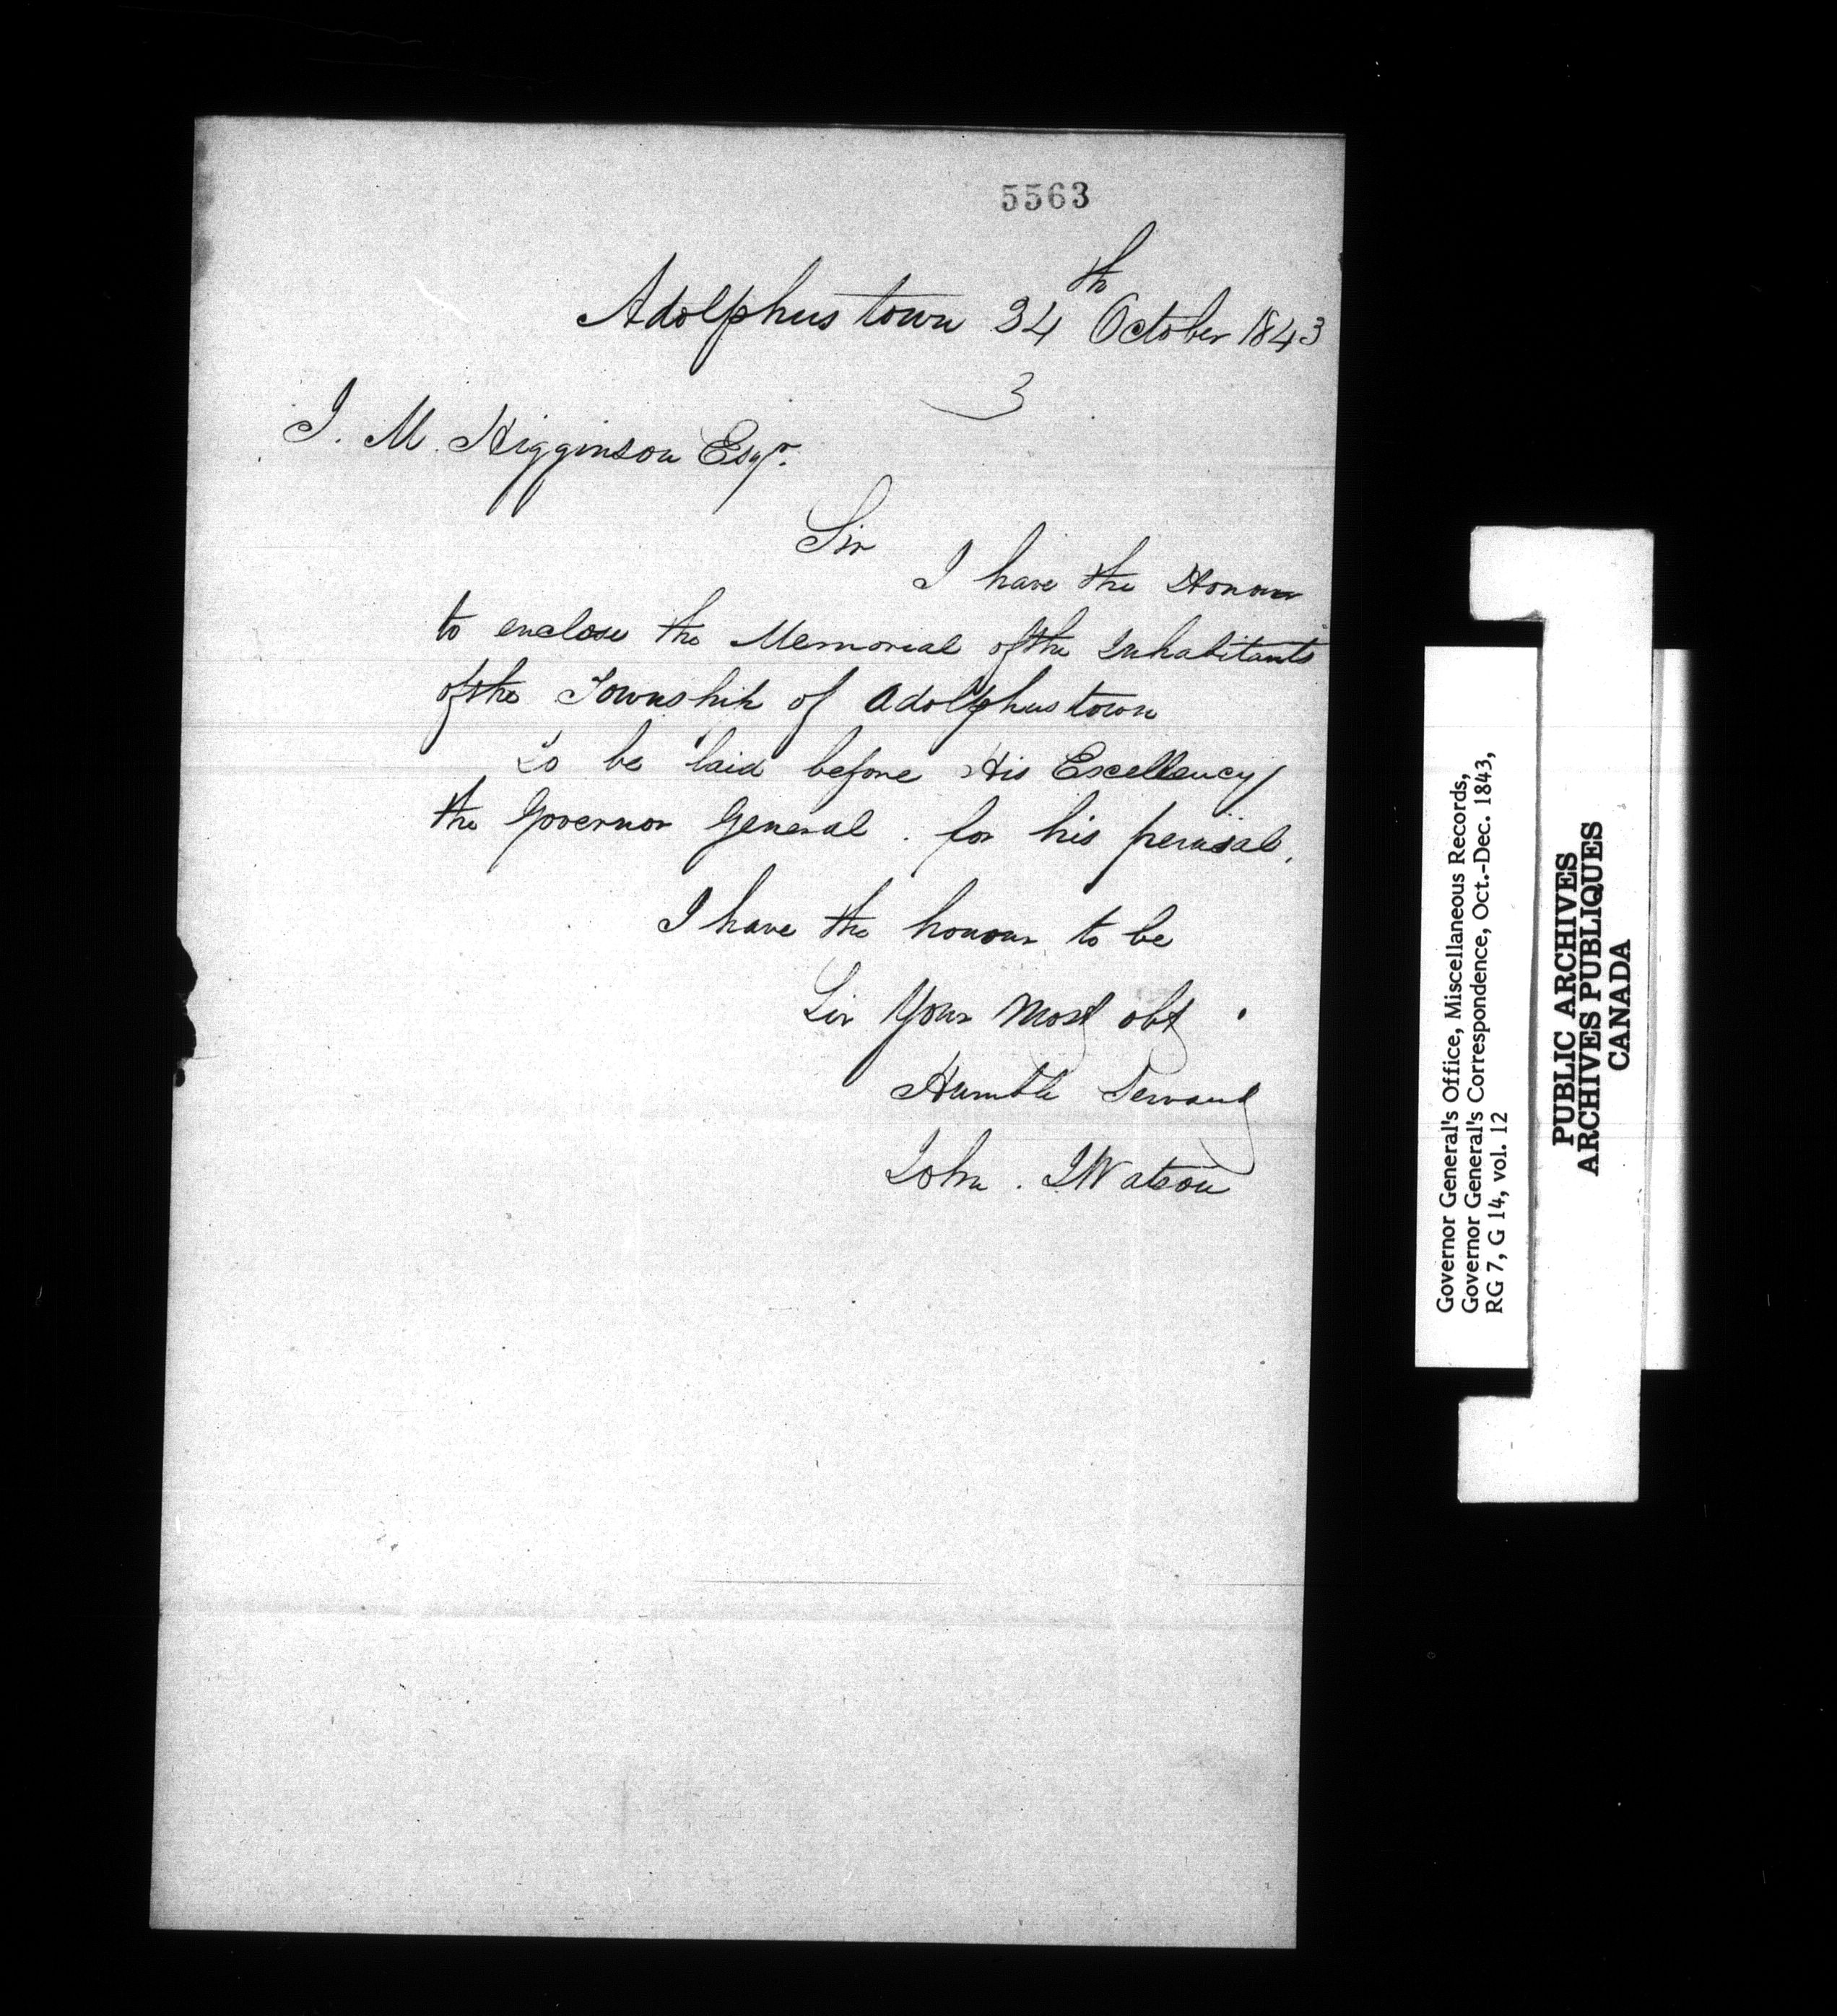 5563
Adolphus town 24th October 1843
3
J. M. Higginson Esqr.
Sir
I have the Honour
to enclose the Memorial of the Inhabitants
of the Township of Adolphustown
To be laid before His Excellency
the Governor General. for his perusal.
I have the honour to be
Sir Your Most obt
Humble Servant
John. J Watson
Governor General's Office, Miscellaneous Records,
Governor General's Correspondence, Oct.-Dec. 1843,
RG 7, G 14, vol. 12
PUBLIC ARCHIVES
ARCHIVES PUBLIQUES
CANADA